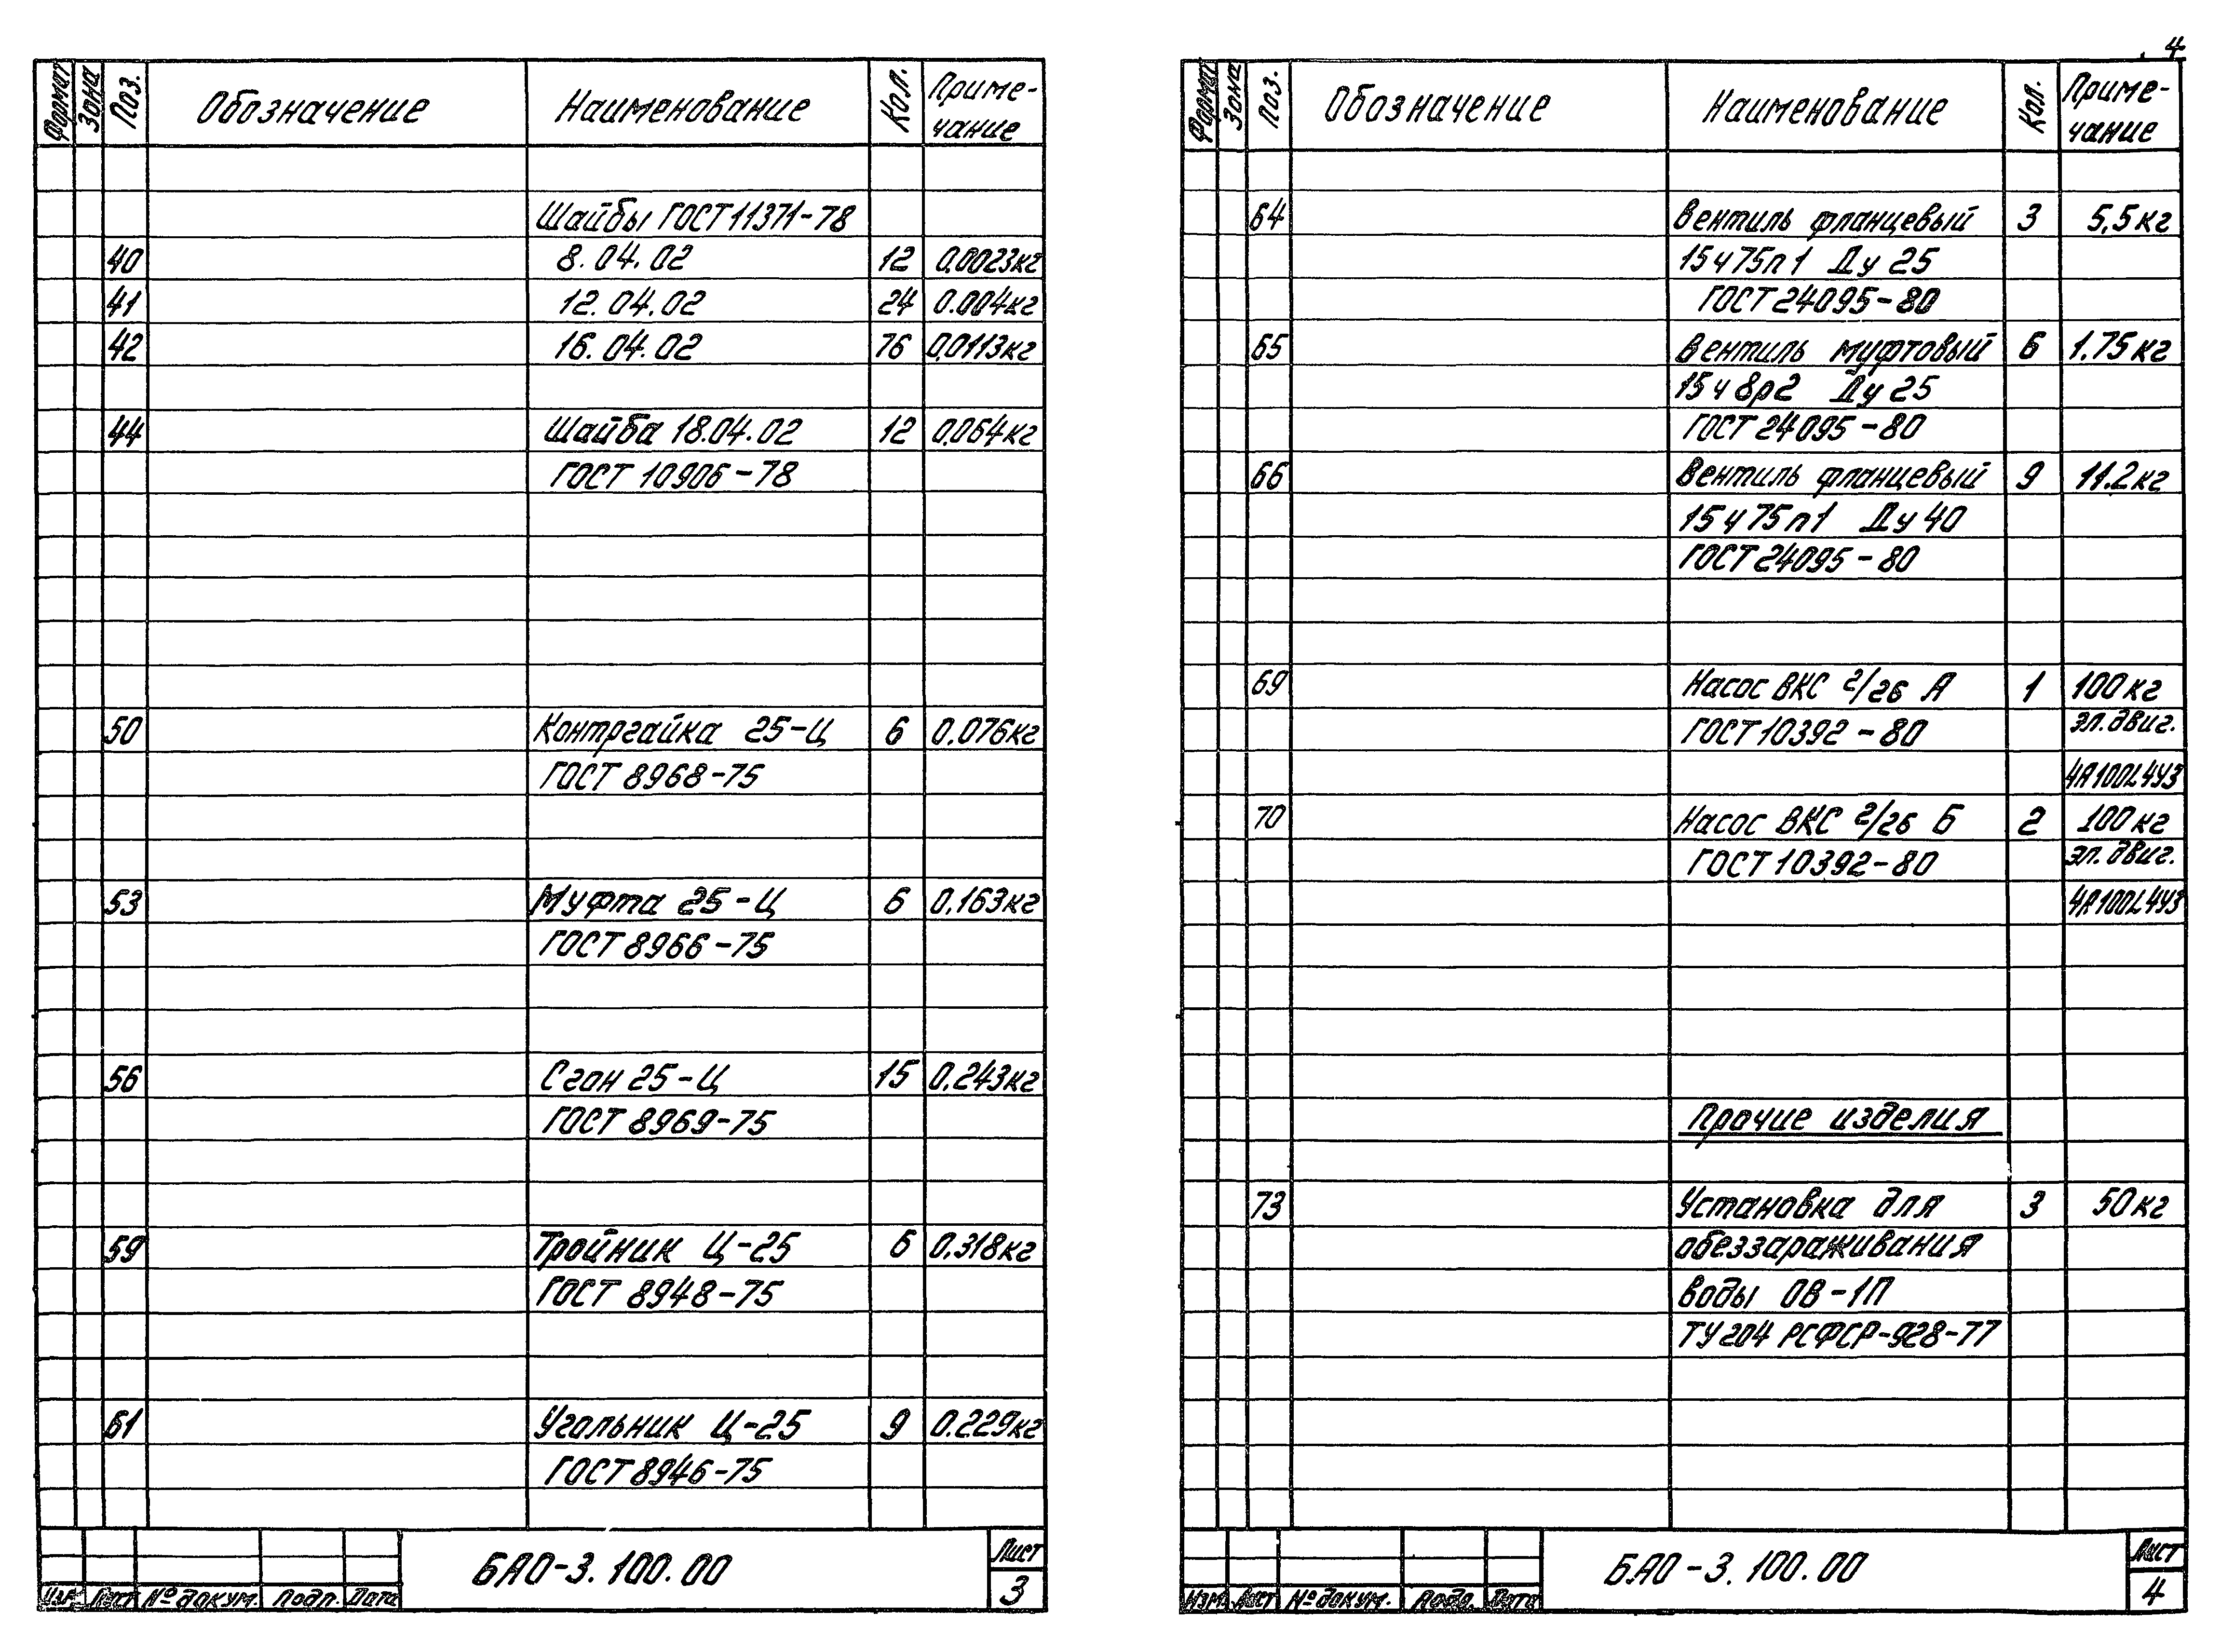 4
Формат Зона Поз. Обозначение Наименование Кол. Приме-
чание
Шайбы ГОСТ 11371-78
40 8.04.02 12 0,0023кг
41 12.04.02 24 0.004кг
42 16.04.02 76 0,0113кг
44 Шайба 18.04.02 12 0,064кг
ГОСТ 10906-78
50 Контргайка 25-Ц 6 0.076кг
ГОСТ 8968-75
53 Муфта 25-Ц 6 0,163кг
ГОСТ 8966-75
56 Сгон 25-Ц 15 0,243кг
ГОСТ 8969-75
59 Тройник Ц-25 6 0,318кг
ГОСТ 8948-75
61 Угольник Ц-25 9 0.229кг
ГОСТ 8946-75
БАО-3.100.00 Лист
Изм. Лист № докум. Подп. Дата 3
Формат Зона Поз. Обозначение Наименование Кол. Приме-
чание
64 Вентиль фланцевый 3 5,5кг
15ч75п1 Ду 25
ГОСТ 24095-80
65 Вентиль муфтовый 6 1.75кг
15ч8р2 Ду 25
ГОСТ 24095-80
66 Вентиль фланцевый 9 11.2кг
15ч75п1 Ду 40
ГОСТ 24095-80
69 Насос ВКС 2/26 А 1 100кг
ГОСТ 10392-80 эл.двиг.
4А100L4У3
70 Насос ВКС 2/26 Б 2 100кг
ГОСТ 10392-80 эл.двиг.
4А100L4У3
Прочие изделия
73 Установка для 3 50кг
обеззараживания
воды ОВ-1П
ТУ 204 РСФСР-928-77
БАО-3.100.00 Лист
Изм. Лист № докум. Подп. Дата 4